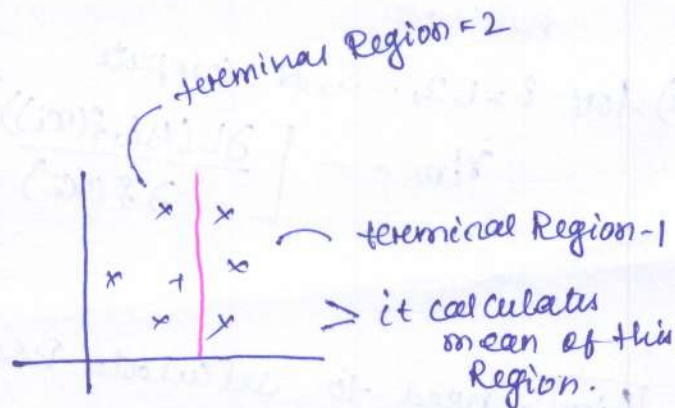 terminal Region = 2
terminal Region-1
> it calculates
mean of this
Region.